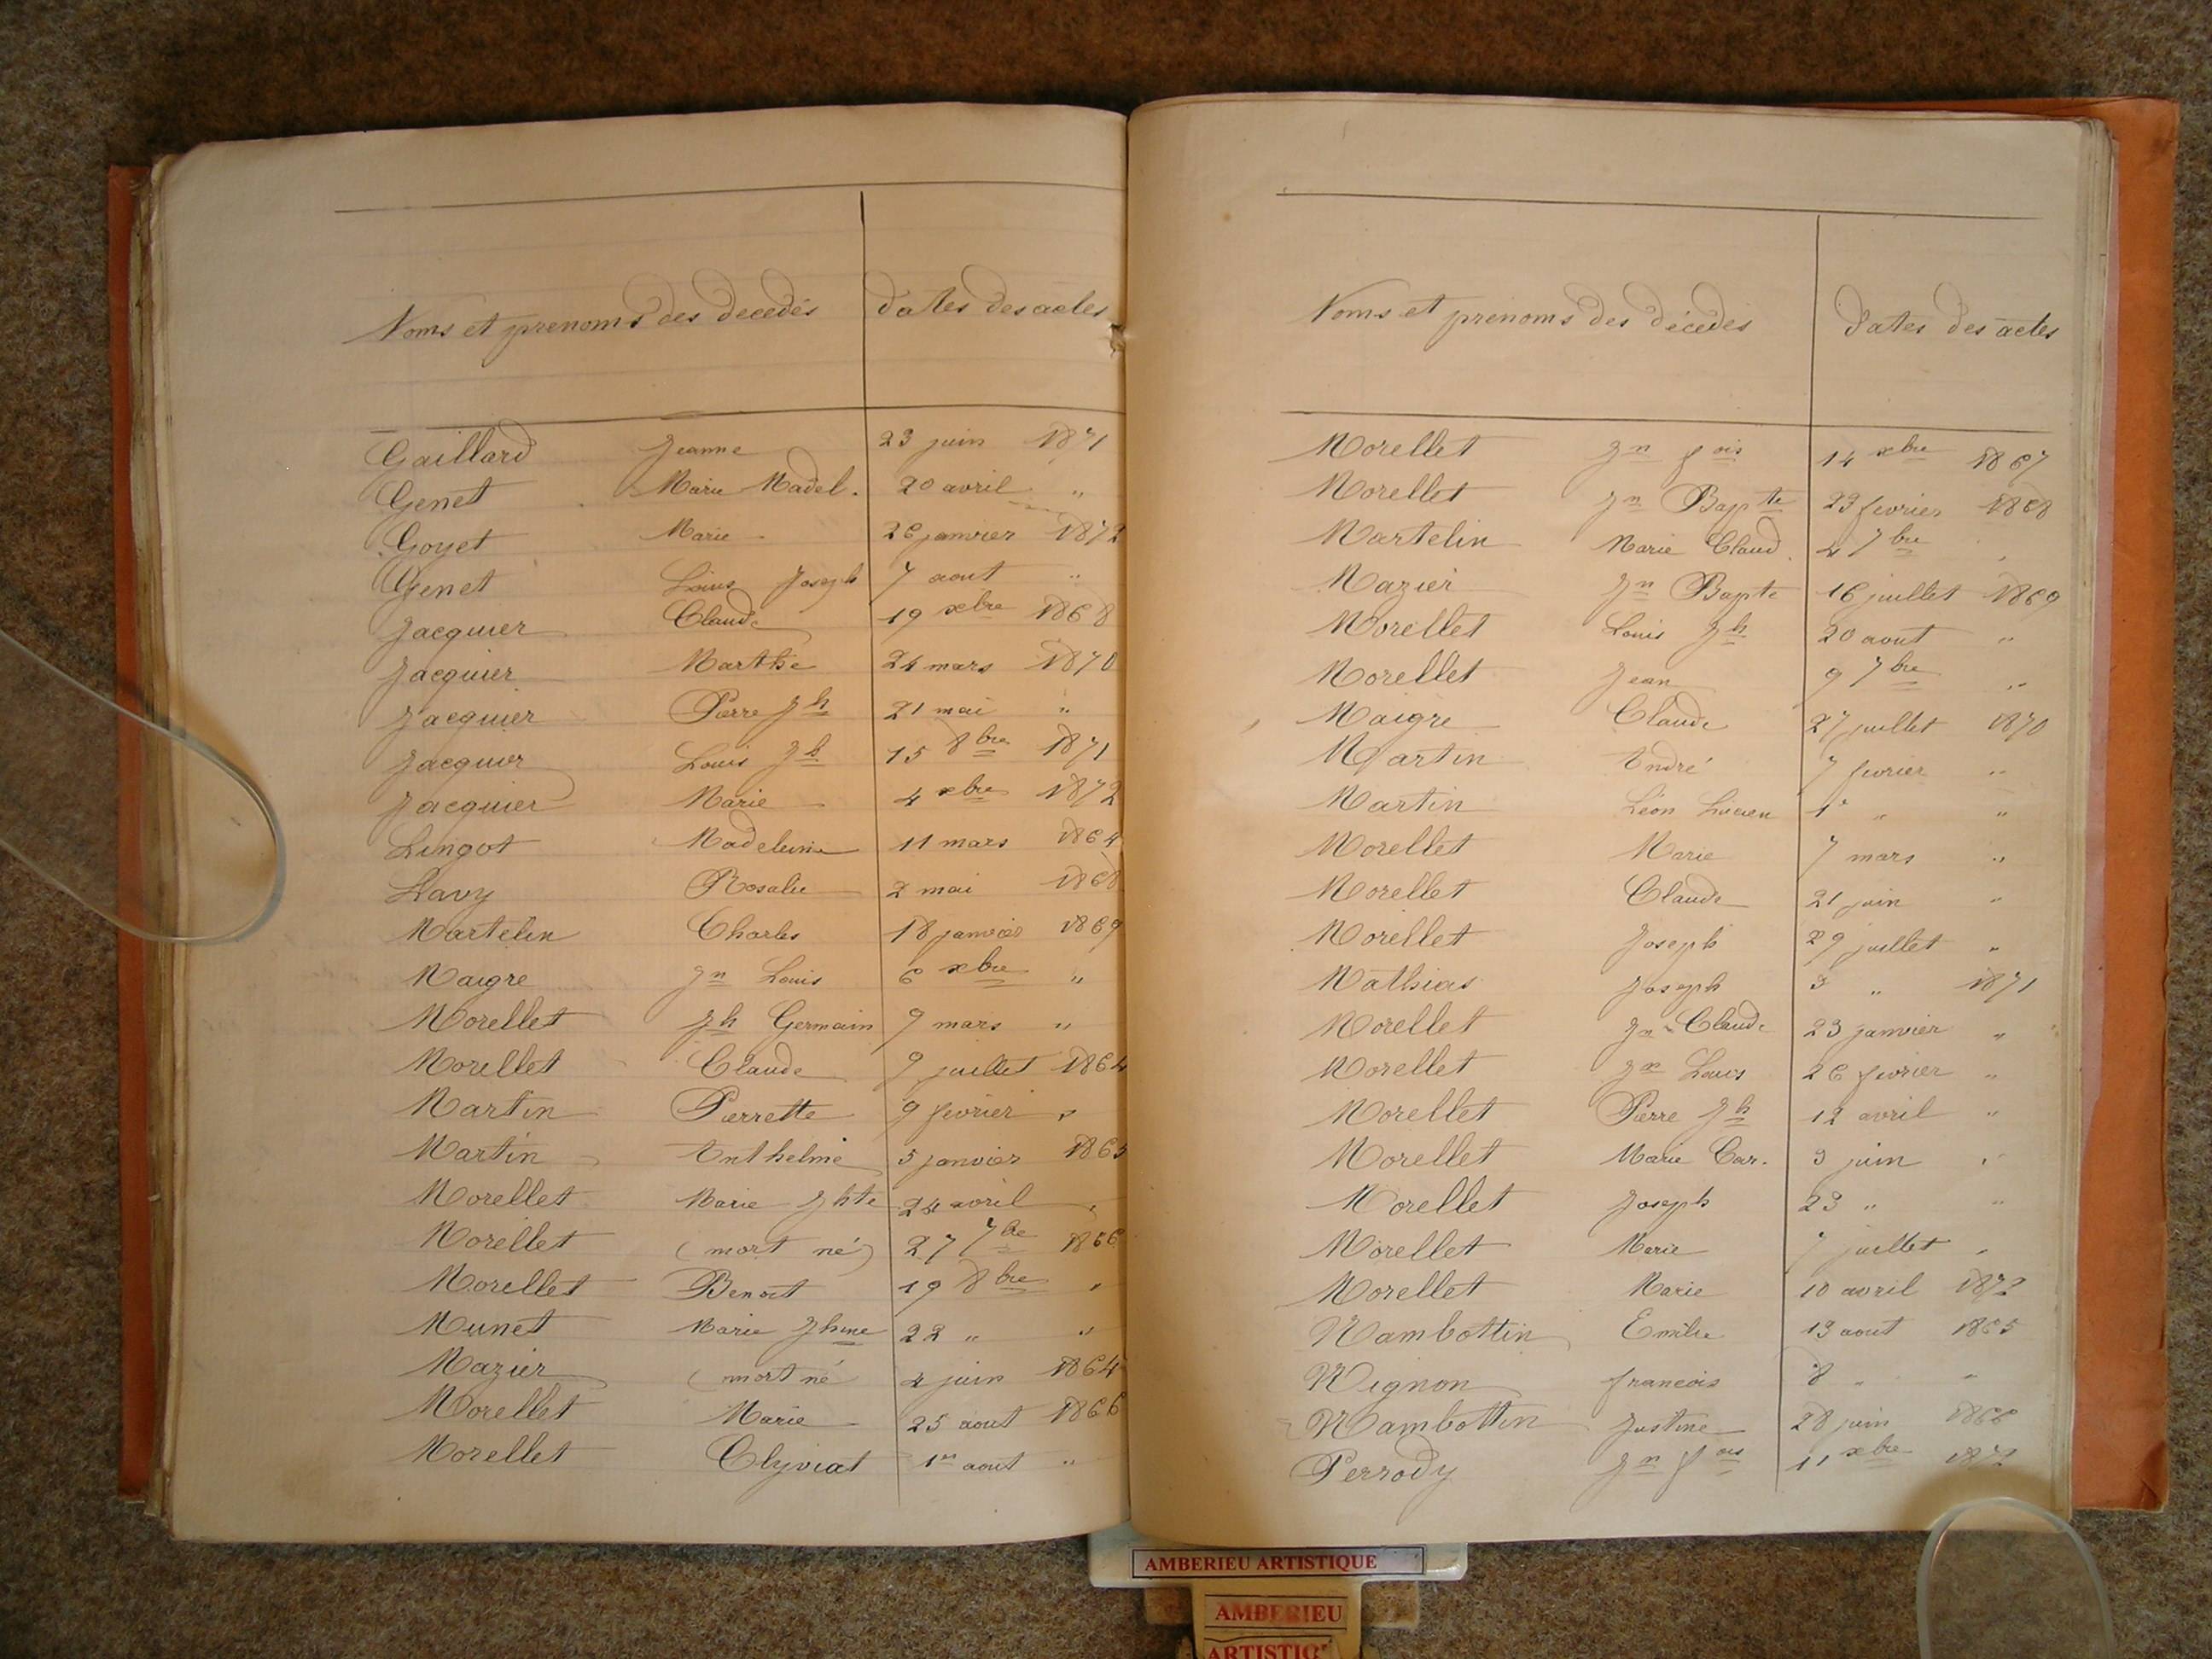 Noms et prenoms des decedés dates des actes
Gaillard Jeanne 23 juin 1871
Genet Marie Madel. 20 avril "
Goyet Marie 26 janvier 1872
Genet Louis Joseph 7 aout "
Jacquier Claude 19 xbre 1868
Jacquier Marthe 24 mars 1870
Jacquier Pierre Jh 21 mai "
Jacquier Louis Jh 15 8bre 1871
Jacquier Marie 4 xbre 1872
Lingot Madeleine 11 mars 1864
Lavy Rosalie 2 mai 1868
Martelin Charles 18 janvier 1869
Maigre Jn Louis 6 xbre "
Morellet Jh Germain 9 mars "
Morellet Claude 9 juillet 1864
Martin Pierrette 9 fevrier "
Martin Anthelme 5 janvier 1865
Morellet Marie Jhte 24 avril "
Morellet (mort né) 27 7bre 1866
Morellet Benoit 19 8bre "
Munet Marie Jhine 22 " "
Mazier (mort né 4 juin 1864
Morellet Marie 25 aout 1866
Morellet Clyviat 1er aout "
Noms et prenoms des décedés dates des actes
Morellet Jn fois 14 xbre 1867
Morellet Jn Bapte 23 fevrier 1868
Martelin Marie Claud. 4 7bre "
Mazier Jn Bapte 16 juillet 1869
Morellet Louis Jh 20 aout "
Morellet Jean 9 7bre "
Maigre Claude 27 juillet 1870
Martin André 7 fevrier "
Martin Léon Lucien 1er " "
Morellet Marie 7 mars "
Morellet Claude 21 juin "
Morellet Joseph 29 juillet "
Mathias Joseph 3 " 1871
Morellet Jn Claude 23 janvier "
Morellet Jn Louis 26 fevrier "
Morellet Pierre Jh 12 avril "
Morellet Marie Car. 3 juin "
Morellet Joseph 23 " "
Morellet Marie 7 juillet "
Morellet Marie 10 avril 1872
Nambottin Emilie 13 aout 1865
Nignon francois 8 " "
Nambottin Justine 28 juin 1866
Perrody Jn fois 11 xbre 1872
AMBERIEU ARTISTIQUE
AMBERIEU